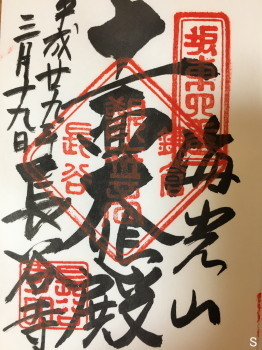 坂東四番
海光山
鎌倉
十一面大悲殿
長谷
長谷寺
平成廿九年
三月十九日
S